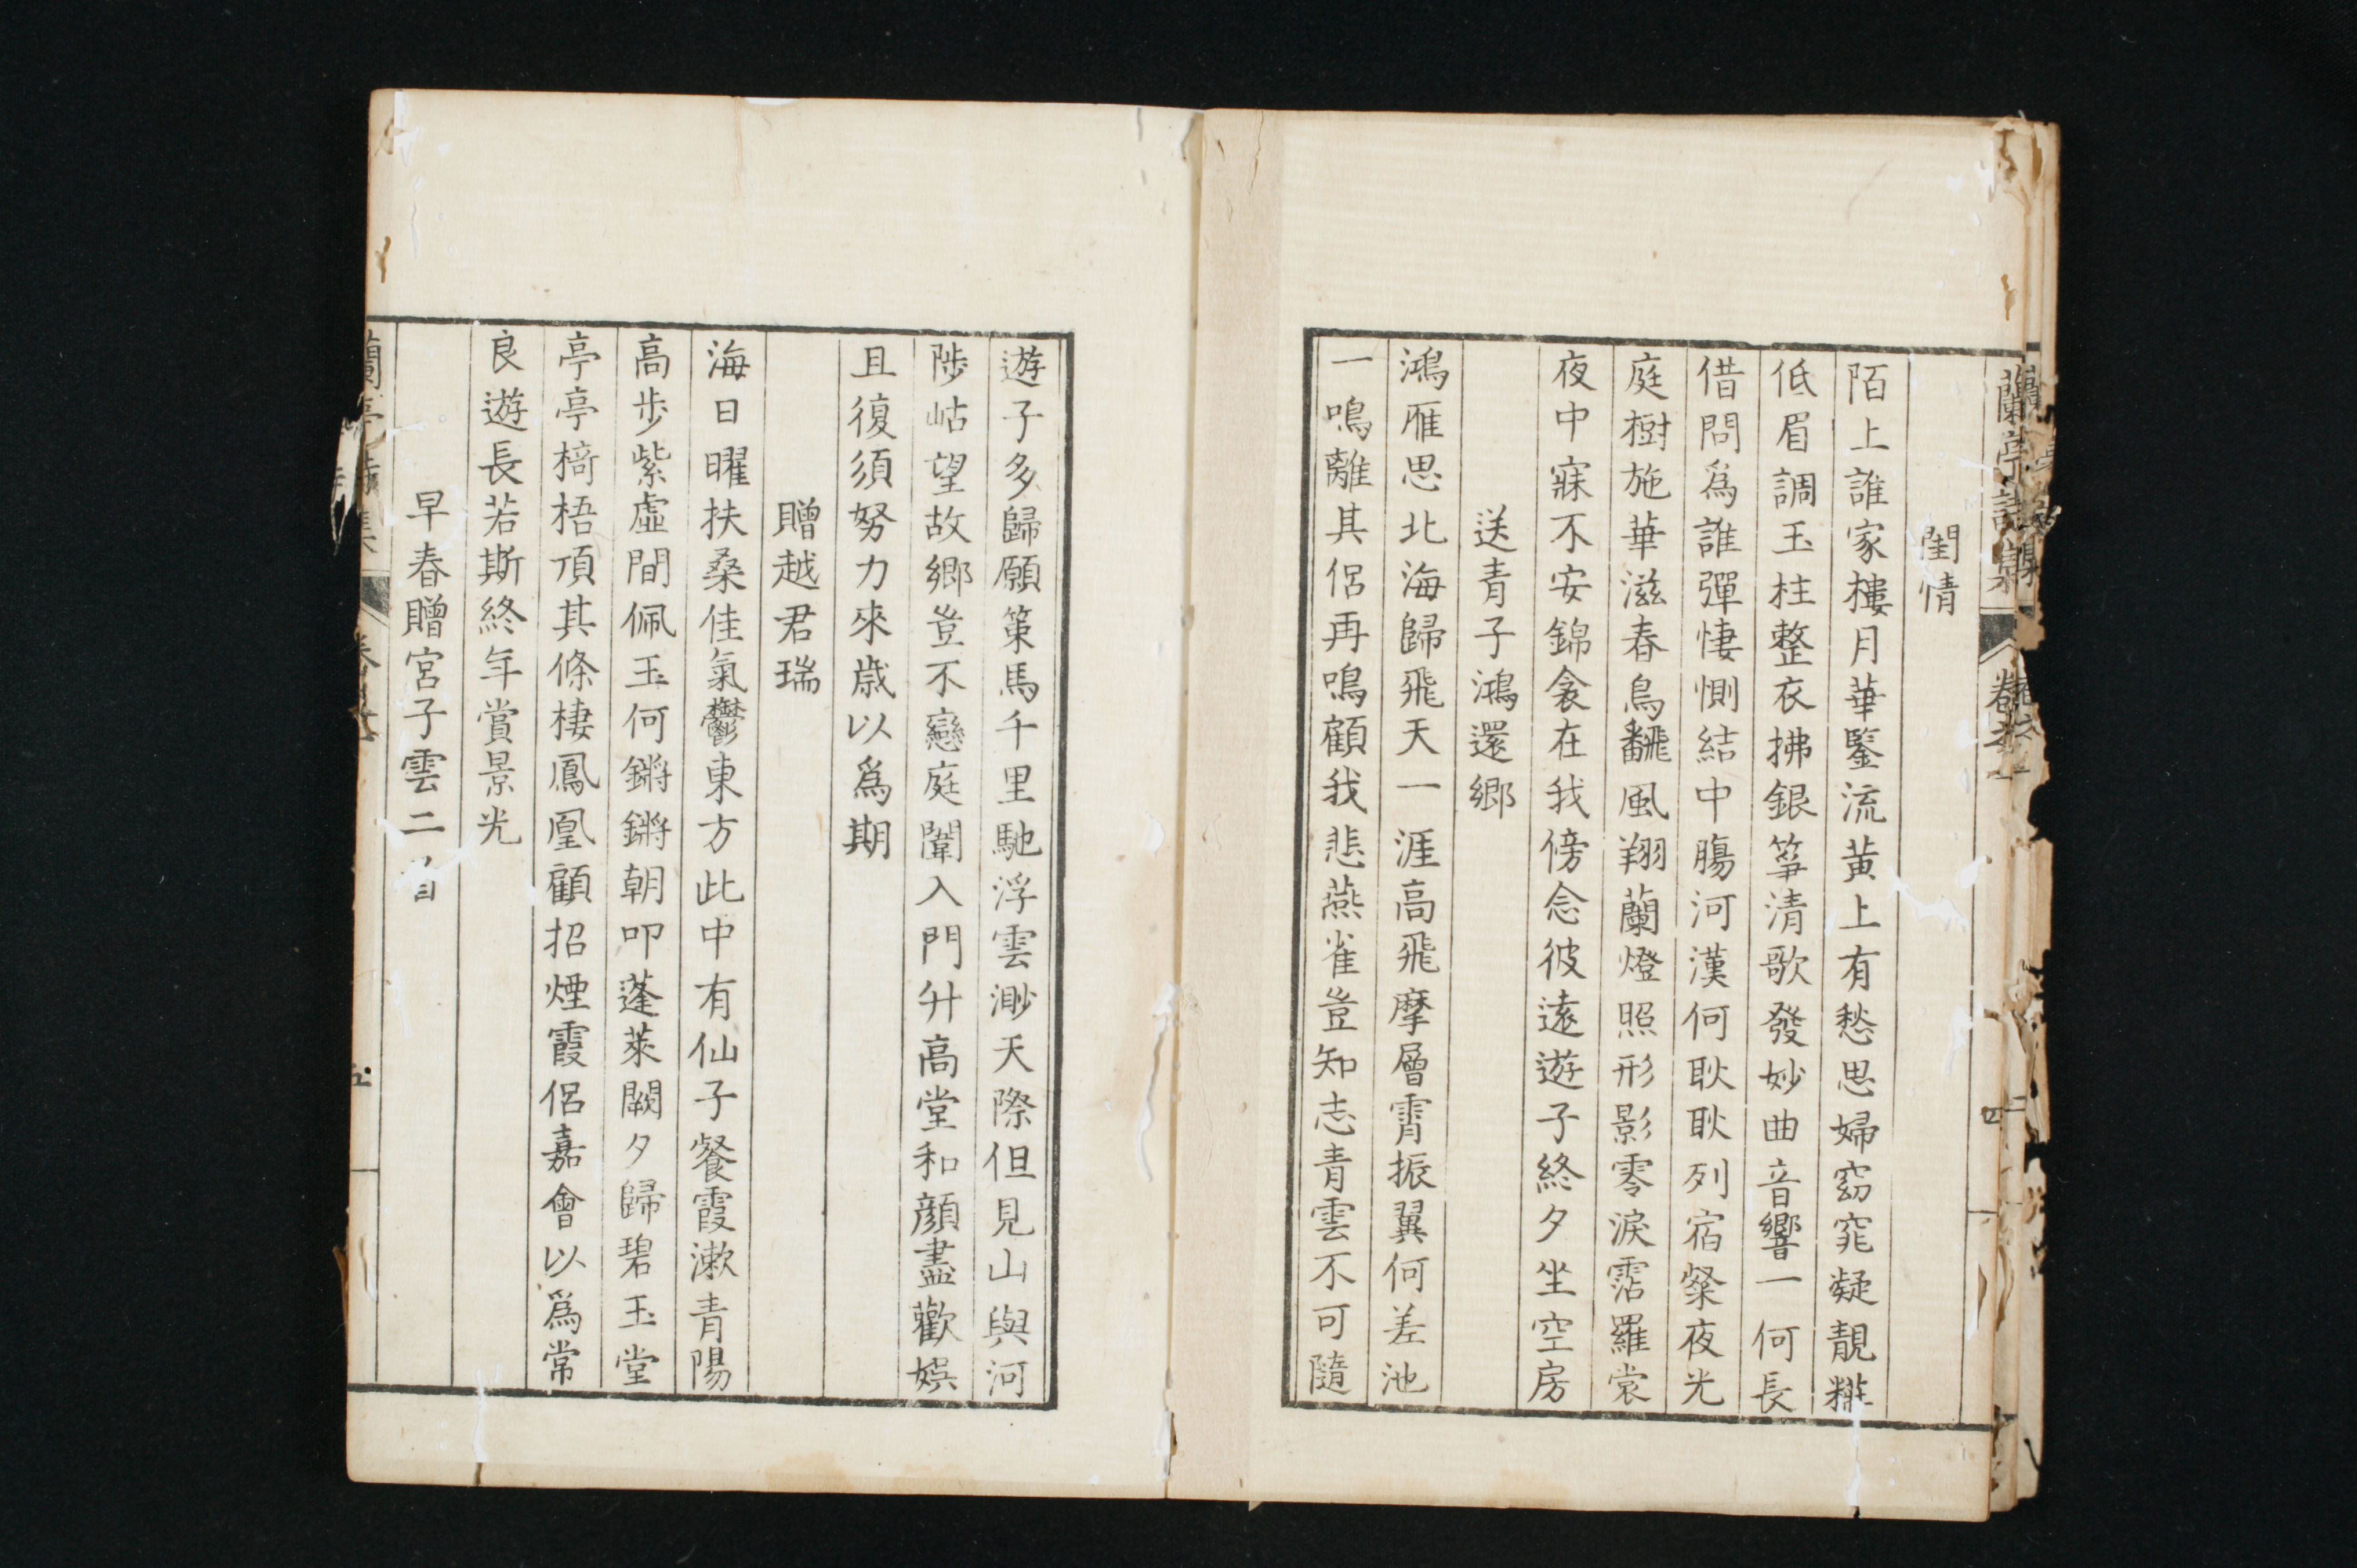 蘭亭詩集
卷之二
四
閨情
陌上誰家樓月華鑒流黃上有愁思婦窈窕凝靚糚
低眉調玉柱整衣拂銀箏清歌發妙曲音響一何長
借問爲誰彈悽惻結中腸河漢何耿耿列宿粲夜光
庭樹施華滋春鳥飜風翔蘭燈照形影零淚霑羅裳
夜中寐不安錦衾在我傍念彼遠遊子終夕坐空房
送青子鴻還鄉
鴻雁思北海歸飛天一涯高飛摩層霄振翼何差池
一鳴離其侶再鳴顧我悲燕雀豈知志青雲不可隨
遊子多歸願策馬千里馳浮雲渺天際但見山與河
陟岵望故鄉豈不戀庭闈入門升高堂和顔盡歡娯
且復須努力來歳以爲期
贈越君瑞
海日曜扶桑佳氣鬱東方此中有仙子餐霞漱青陽
高步紫虛間佩玉何鏘鏘朝叩蓬萊闕夕歸碧玉堂
亭亭椅梧頂其條棲鳳凰顧招煙霞侶嘉會以爲常
良遊長若斯終年賞景光
早春贈宮子雲二首
蘭亭詩集
五